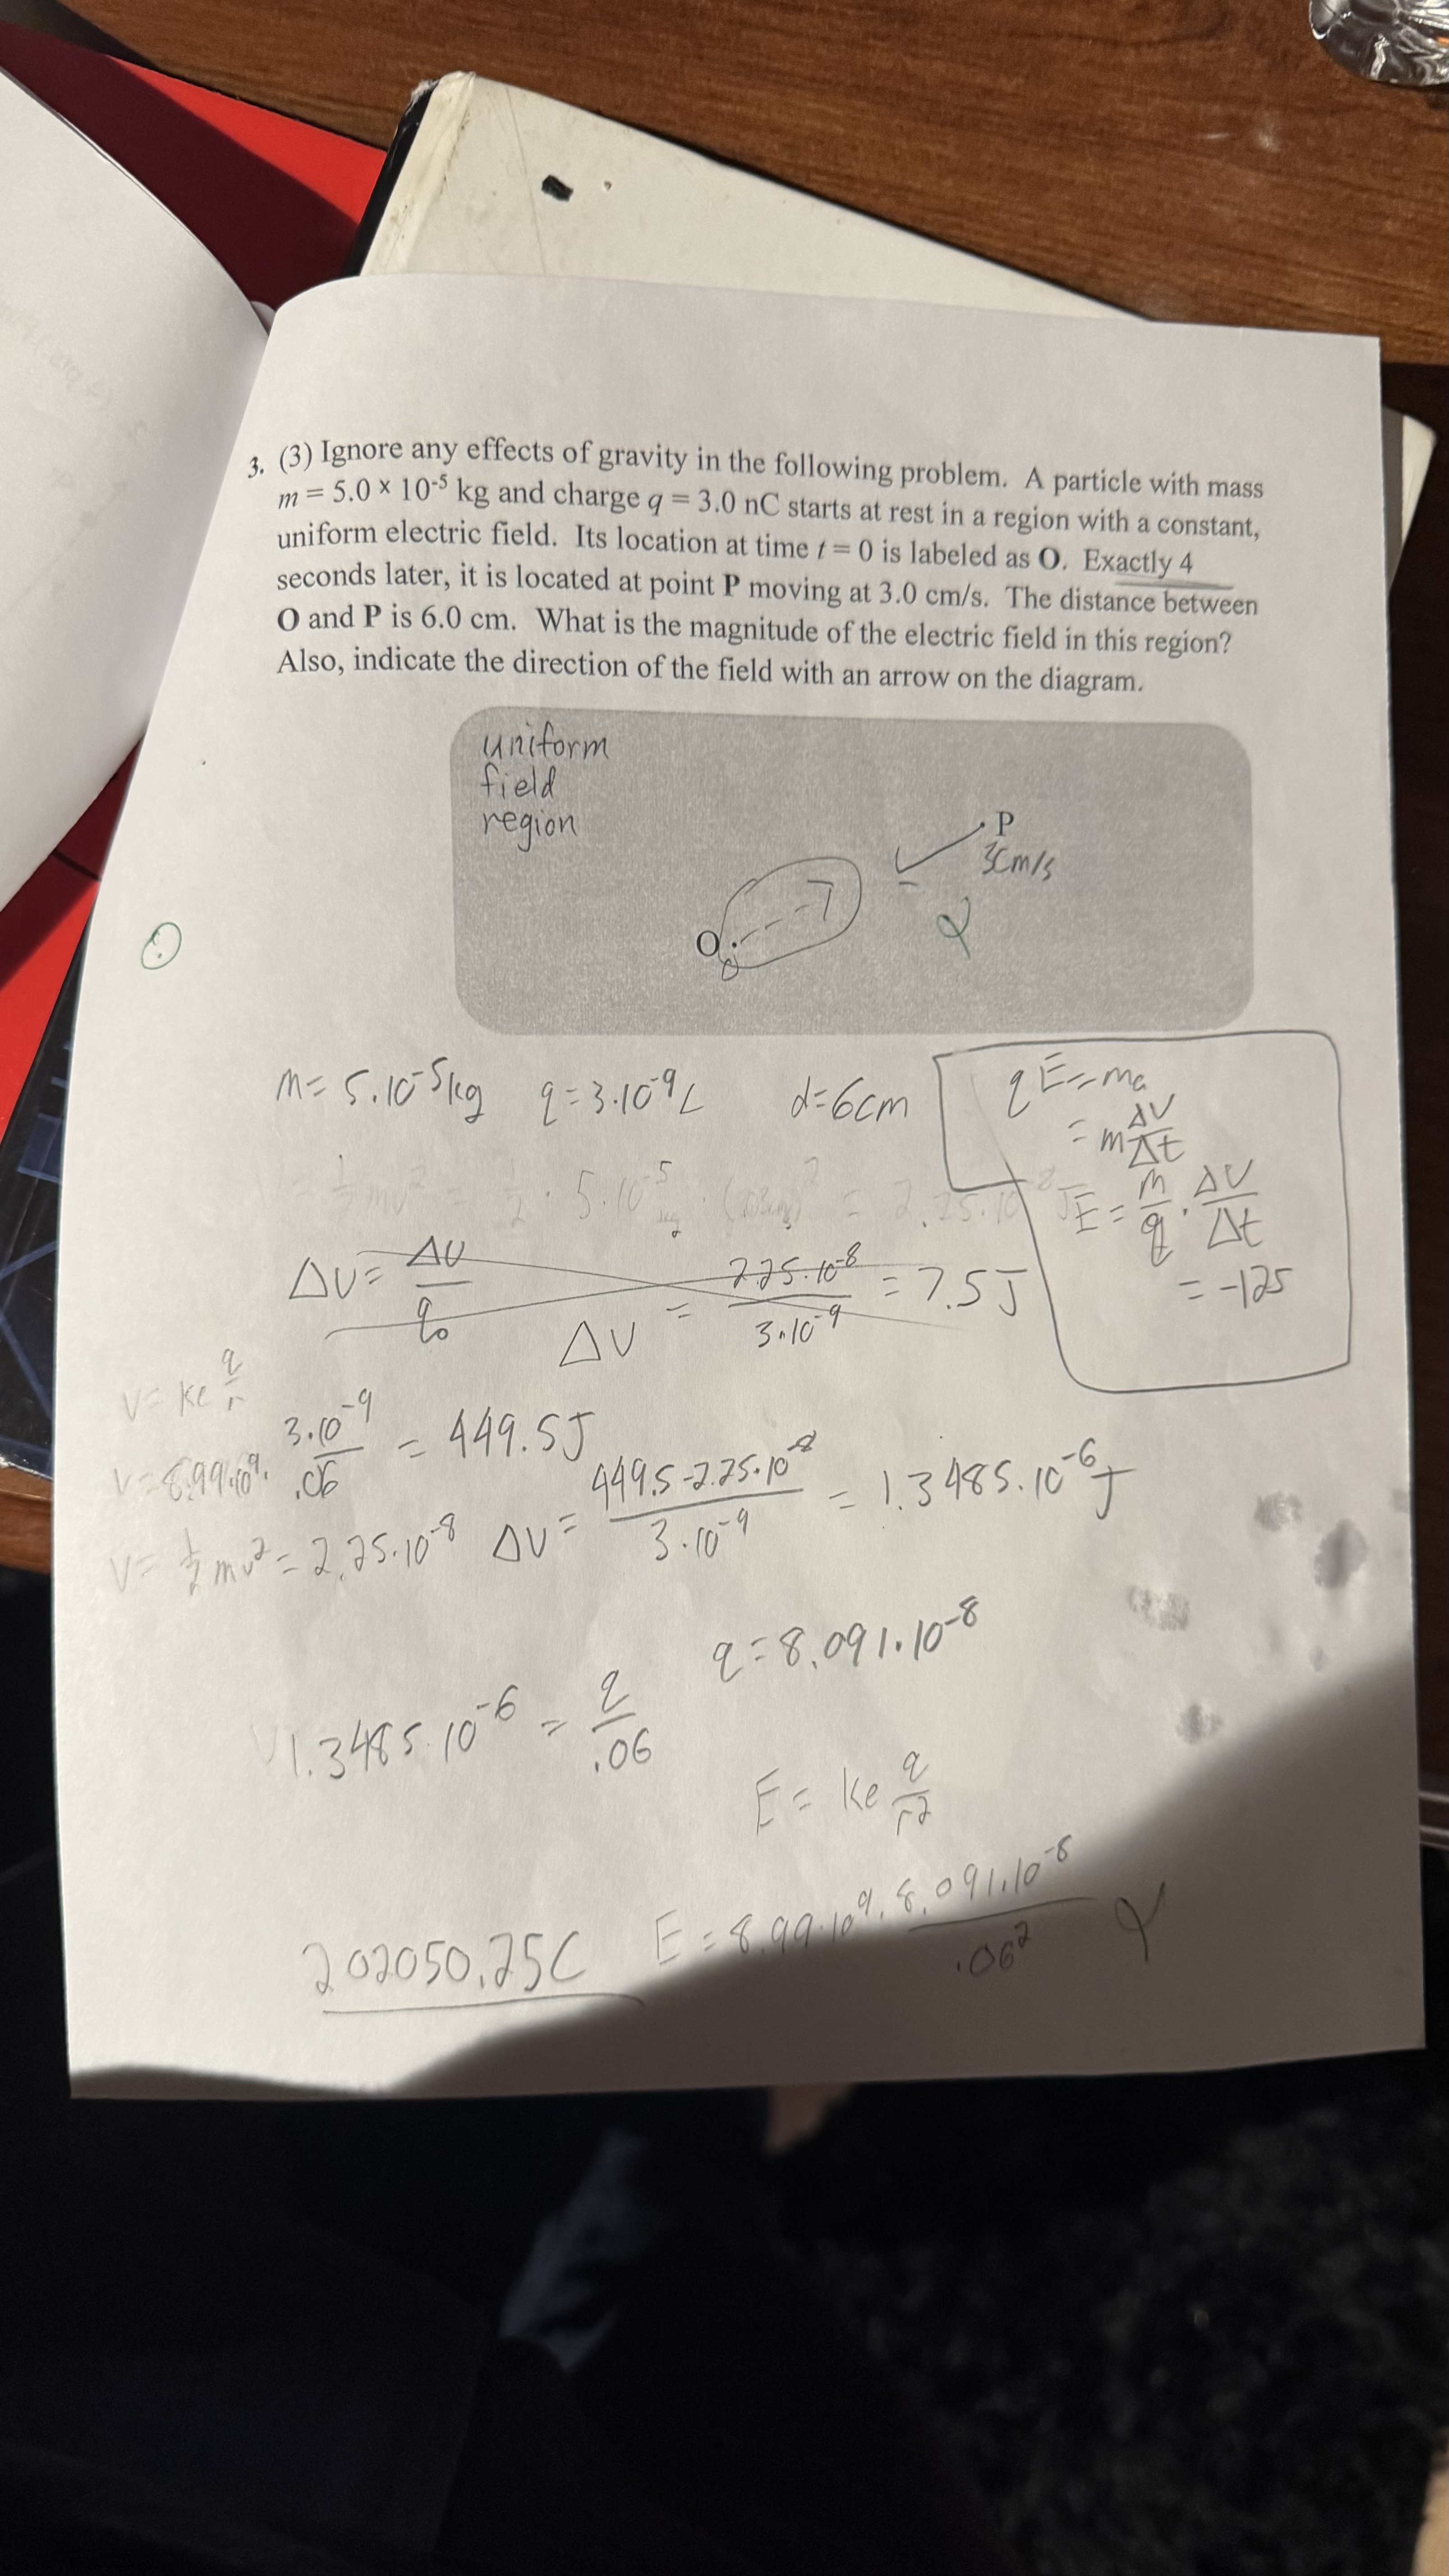 3. (3) Ignore any effects of gravity in the following problem. A particle with mass
m = 5.0 × 10⁻⁵ kg and charge q = 3.0 nC starts at rest in a region with a constant,
uniform electric field. Its location at time t = 0 is labeled as O. Exactly 4
seconds later, it is located at point P moving at 3.0 cm/s. The distance between
O and P is 6.0 cm. What is the magnitude of the electric field in this region?
Also, indicate the direction of the field with an arrow on the diagram.
uniform
field
region
P
3cm/s
O
m = 5·10⁻⁵kg q = 3·10⁻⁹C d=6cm
qE = ma
= m ΔV/Δt
E = m/q · ΔV/Δt
= -125
5·10⁻⁵
ΔV = ΔU/q₀ ΔV = 2.25·10⁻⁸/3·10⁻⁹ = 7.5J
V = ke q/r
V = 8.99·10⁹· 3·10⁻⁹/.06 = 449.5J
V = ½mv² = 2.25·10⁻⁸ ΔV = 449.5-2.25·10⁻⁸/3·10⁻⁹ = 1.3485·10⁻⁶J
q = 8.091·10⁻⁸
1.3485·10⁻⁶ = q/.06
E = ke q/r²
202050.25C E = 8.99·10⁹· 8.091·10⁻⁸/.06²